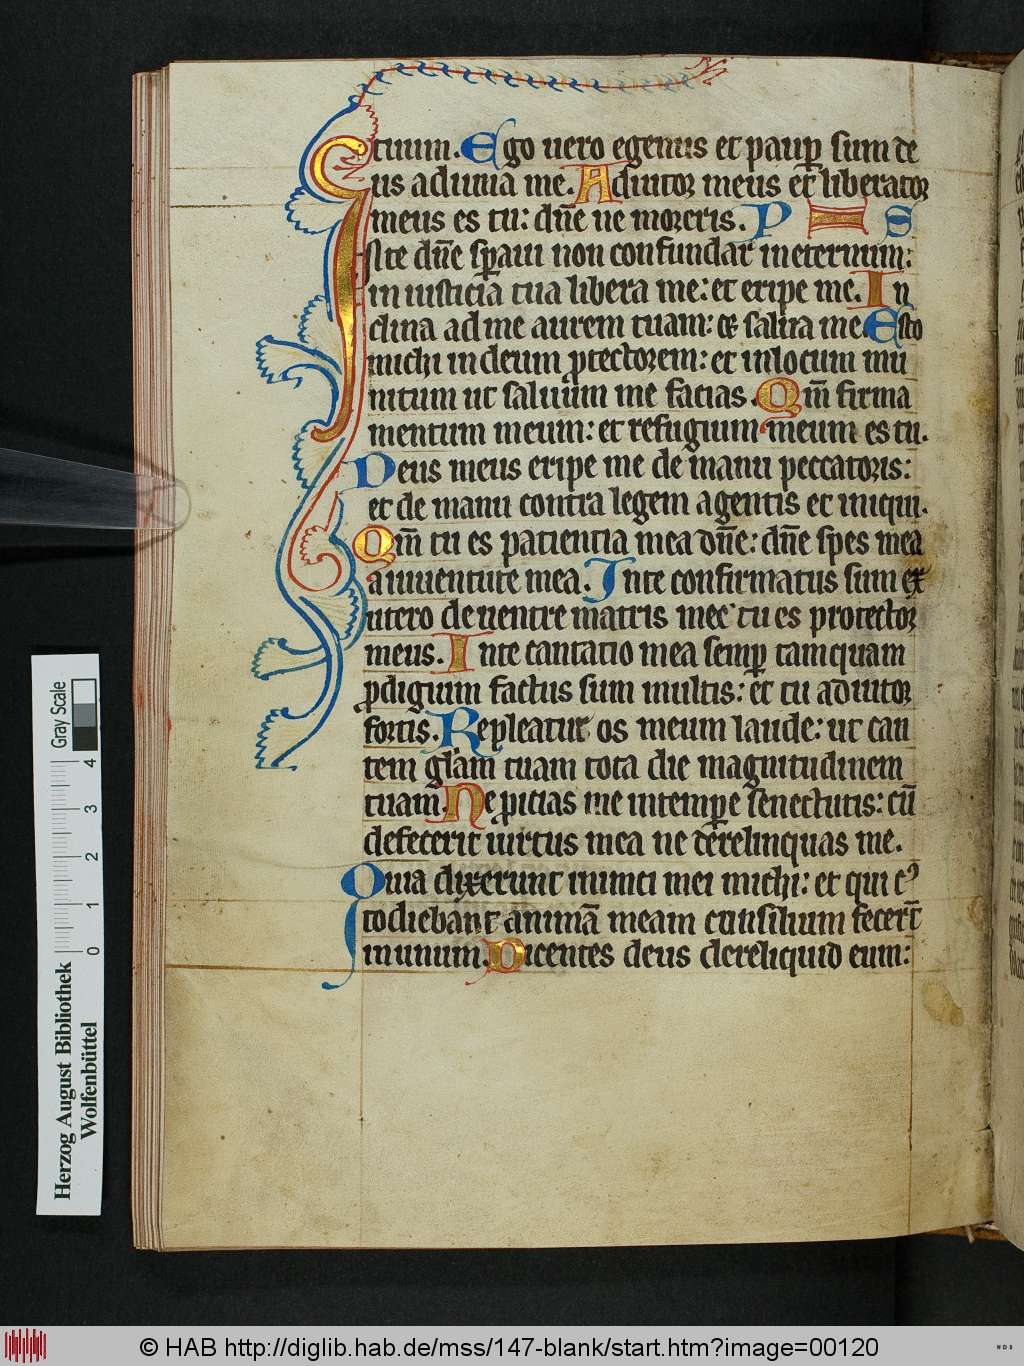 tuum. Ego uero egenus et paup sum de
us adiuua me. Adiutor meus et liberator
meus es tu: dñe ne moreris. P H S
In te dñe spaui non confundar in eternum:
in iusticia tua libera me: et eripe me. In
clina ad me aurem tuam: et salua me. Esto
michi in deum ptectorem: et in locum mu
nitum ut saluum me facias. Qm̄ firma
mentum meum: et refugium meum es tu.
Deus meus eripe me de manu peccatoris:
et de manu contra legem agentis et iniqui.
Qm̄ tu es patientia mea dñe: dñe spes mea
a iuuentute mea. In te confirmatus sum ex
utero de uentre matris mee tu es protector
meus. In te cantatio mea semp tamquam
pdigium factus sum multis: et tu adiutor
fortis. Repleatur os meum laude: ut can
tem glām tuam tota die magnitudinem
tuam. Ne picias me in tempe senectutis: cū
defecerit uirtus mea ne derelinquas me.
Quia dixerunt inimici mei michi: et qui c9
todiebant animā meam consilium fecert̄
in unum. Dicentes deus dereliquid eum:
Gray Scale
4 3 2 1 0
Herzog August Bibliothek
Wolfenbüttel
© HAB http://diglib.hab.de/mss/147-blank/start.htm?image=00120